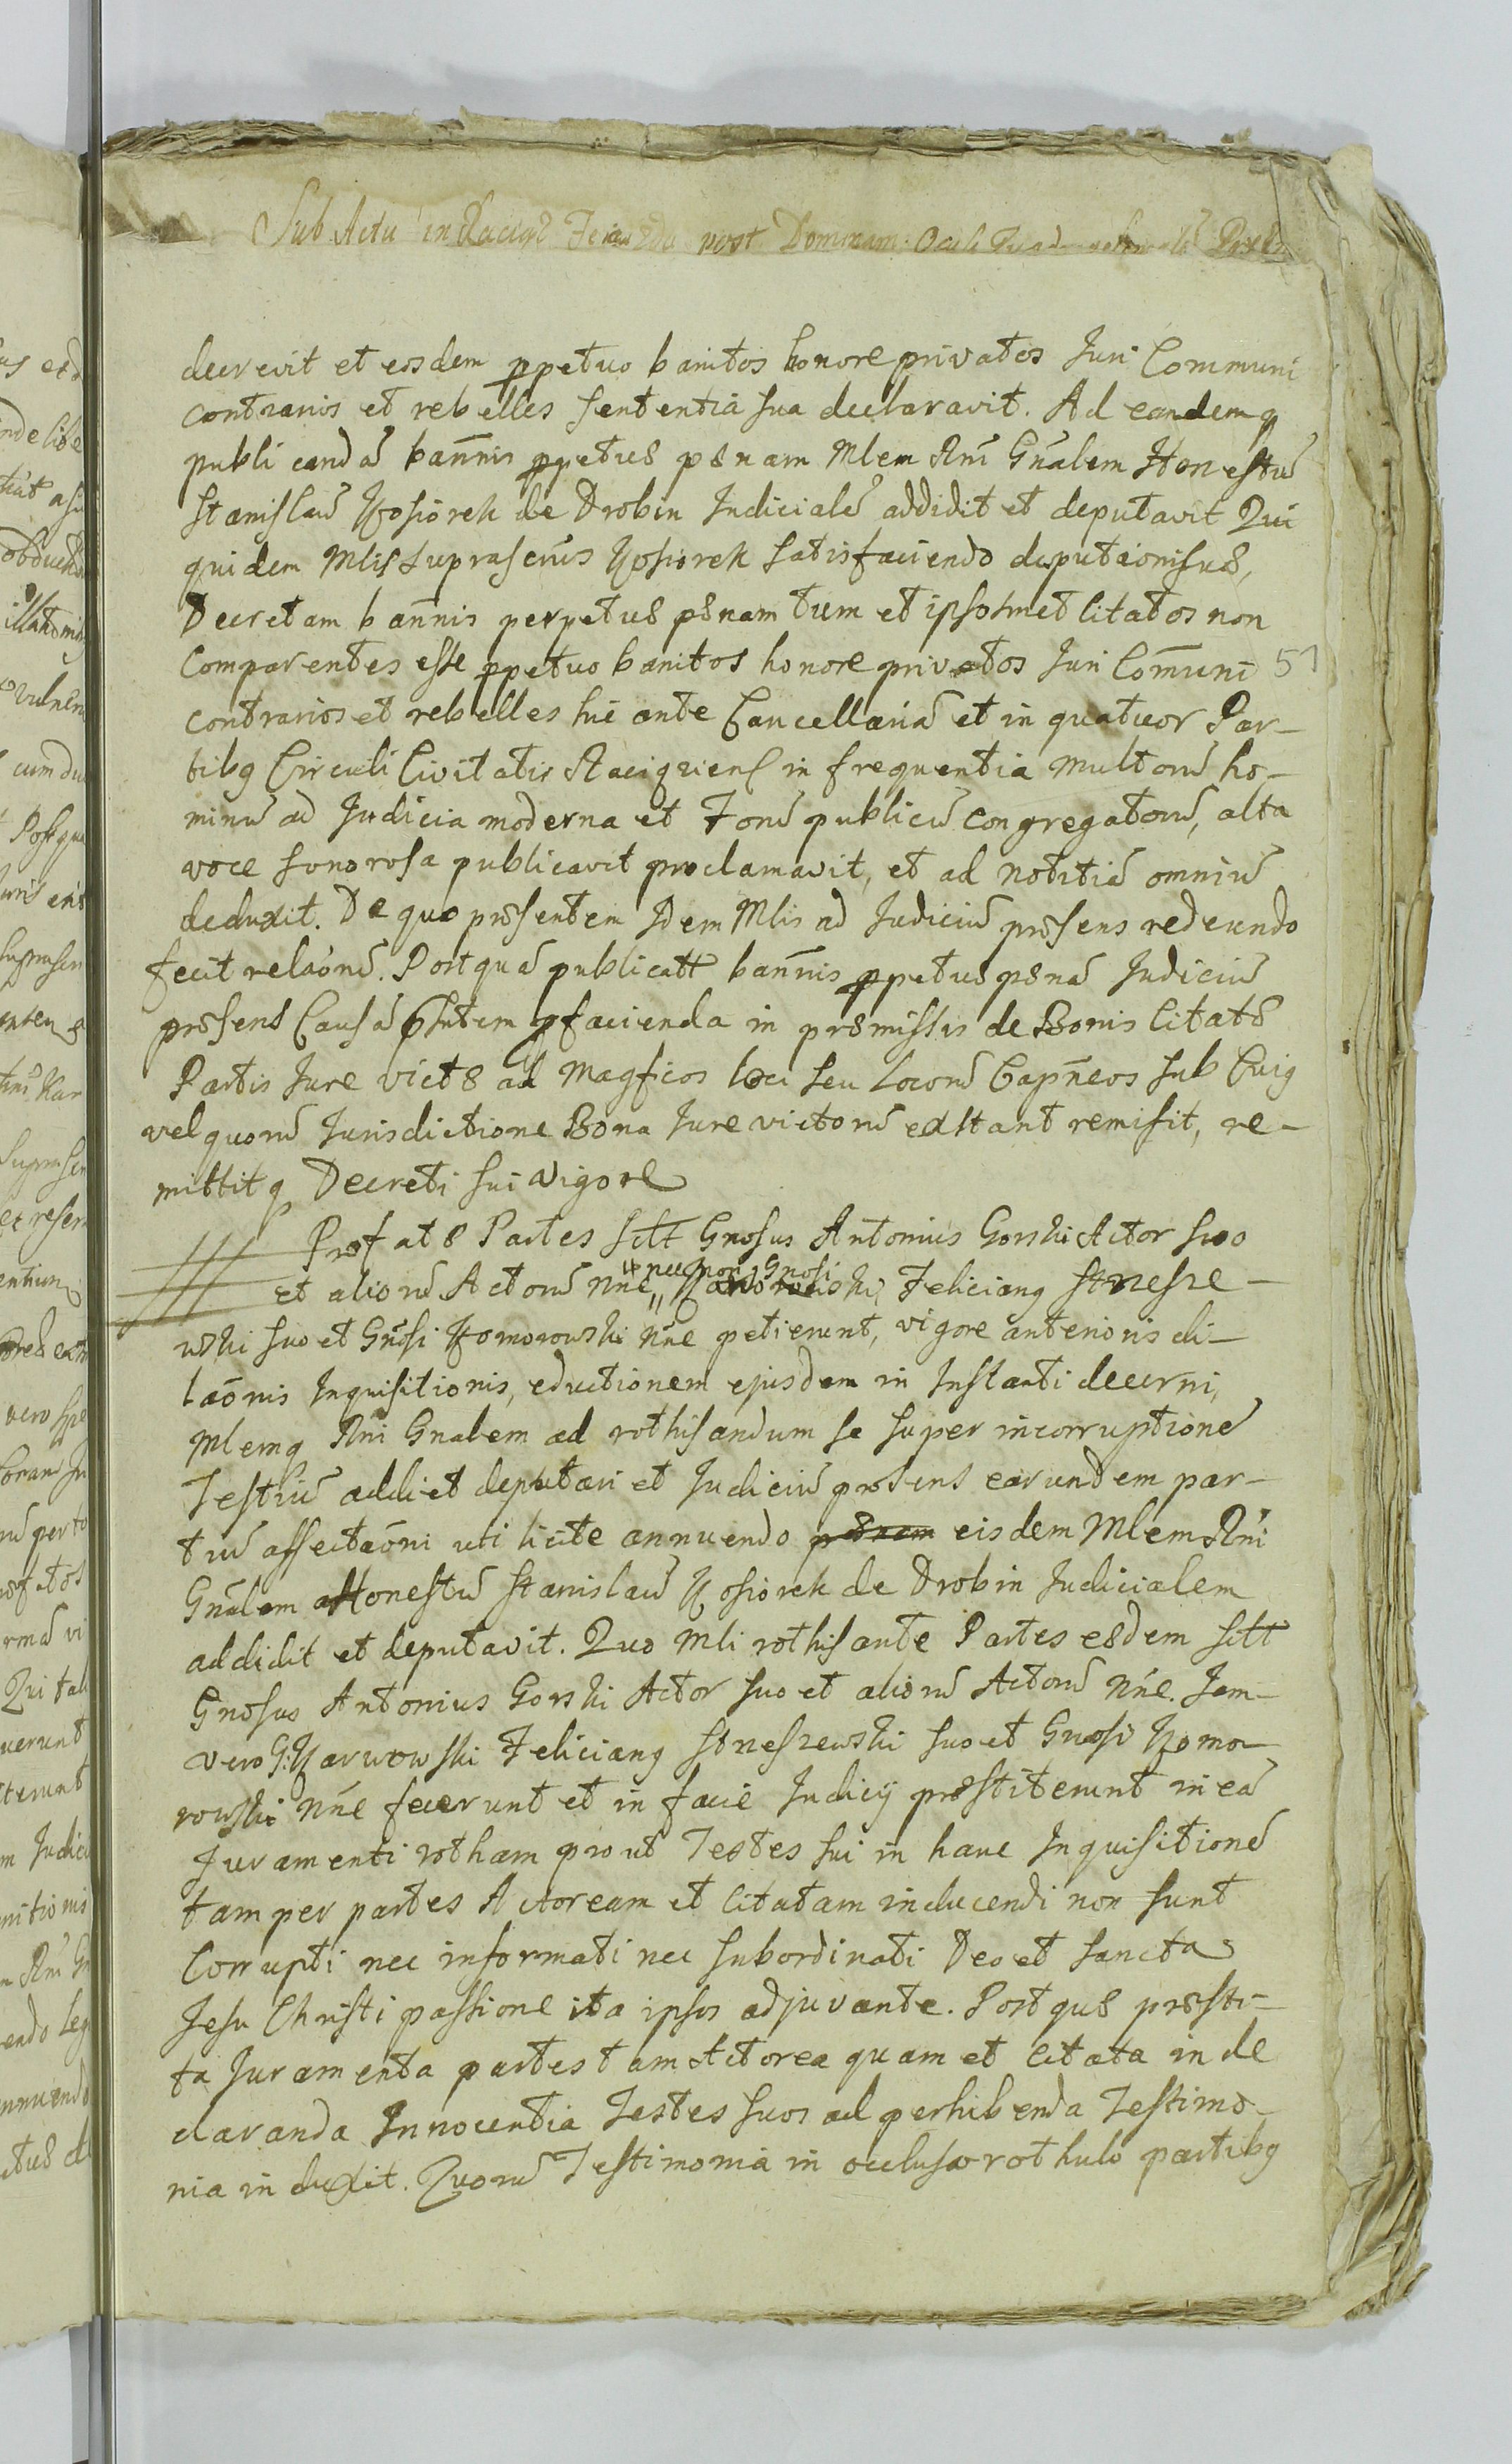 Sub Actu in Raciąż Feria 2da post Dominicam Oculi
decrevit et eosdem ppetuo banitos honore privatos Juri Communi
contrarios et rebelles sententia sua declaravit. Ad eandemq
publicandã bannis ppetuæ pænam Mlem Rni Gnalem Honestũ
Stanislaũ Kosiorek de Drobin Judicialẽ addidit et deputavit Qui
quidem Mlis suprascrius Kosiorek satisfaciendo deputaonisuæ,
Decretam bannis perpetuæ pænam tum et ipsosmet Citatos non
Comparentes esse ppetuo banitos honore privatos Juri Comuni 51
contrarios et rebelles hic ante Cancellariã et in quatuor Par-
tibq Circuli Civitatis Raciąziens in frequentia multorũ ho-
minũ ad Judicia moderna et Forũ publicũ congregatorũ, alta
voce sonorosa publicavit proclamavit, et ad notitiã omniũ
deduxit. De quo præsentem Idem Mlis ad Judiciũ præsens redeundo
fecit relaonẽ. Post quã publicatt bannis ppetuæ pænã Judiciũ
præsens Causã faciendã in præmissis de Bonis Citatæ
Partis Jure victæ ad Magficos loci seu Locorũ Capneos sub Cuiq
vel quorũ Jurisdictione Bona Jure victorũ exstant remisit, re-
mittitq Decreti sui vigore
Præfatæ Partes scitt Gnosus Antonius Gorski Actor suo
et aliorũ Actorũ nne, necnon Gnosi Karwowski, Felicianq Strzesze-
wski suo et Gnosi Komorowski nne petierunt, vigore anterioris di-
laonis Inquisitionis, eductionem ejusdem in Instanti decerni,
Mlemq Rni Gnalem ad rothisandum se super incorruptionẽ
Testiũ addi et deputari et Judiciũ præsens earundem par-
tiũ affectaoni uti licite annuendo pænam eisdem Mlem Rni
Gnalem Honestũ Stanislaũ Kosiorek de Drobin Judicialem
addidit et deputavit. Quo Mli rothisante Partes eædem scitt
Gnosus Antonius Gorski Actor suo et aliorũ Actorũ nne. Jam-
vero G: Karwowski Felicianq Strzeszewski suo et Gnosi Komo-
rowski nne fecerunt et in facie Judicij præstiterunt in eã
Juramenti rotham prout Testes sui in hanc Inquisitionẽ
tam per partes Actoream et Citatam inducendi non sunt
Corrupti nec informati nec subordinati Deo et sancta
Jesu Christi passione ita ipsos adjuvante. Post quæ præsti-
ta Juramenta partes tam Actorea quam et Citata in de
claranda Innocentia Testes suos ad perhibenda Testimo-
nia in duxit. Quorũ Testimonia in occluso rothulo partibq